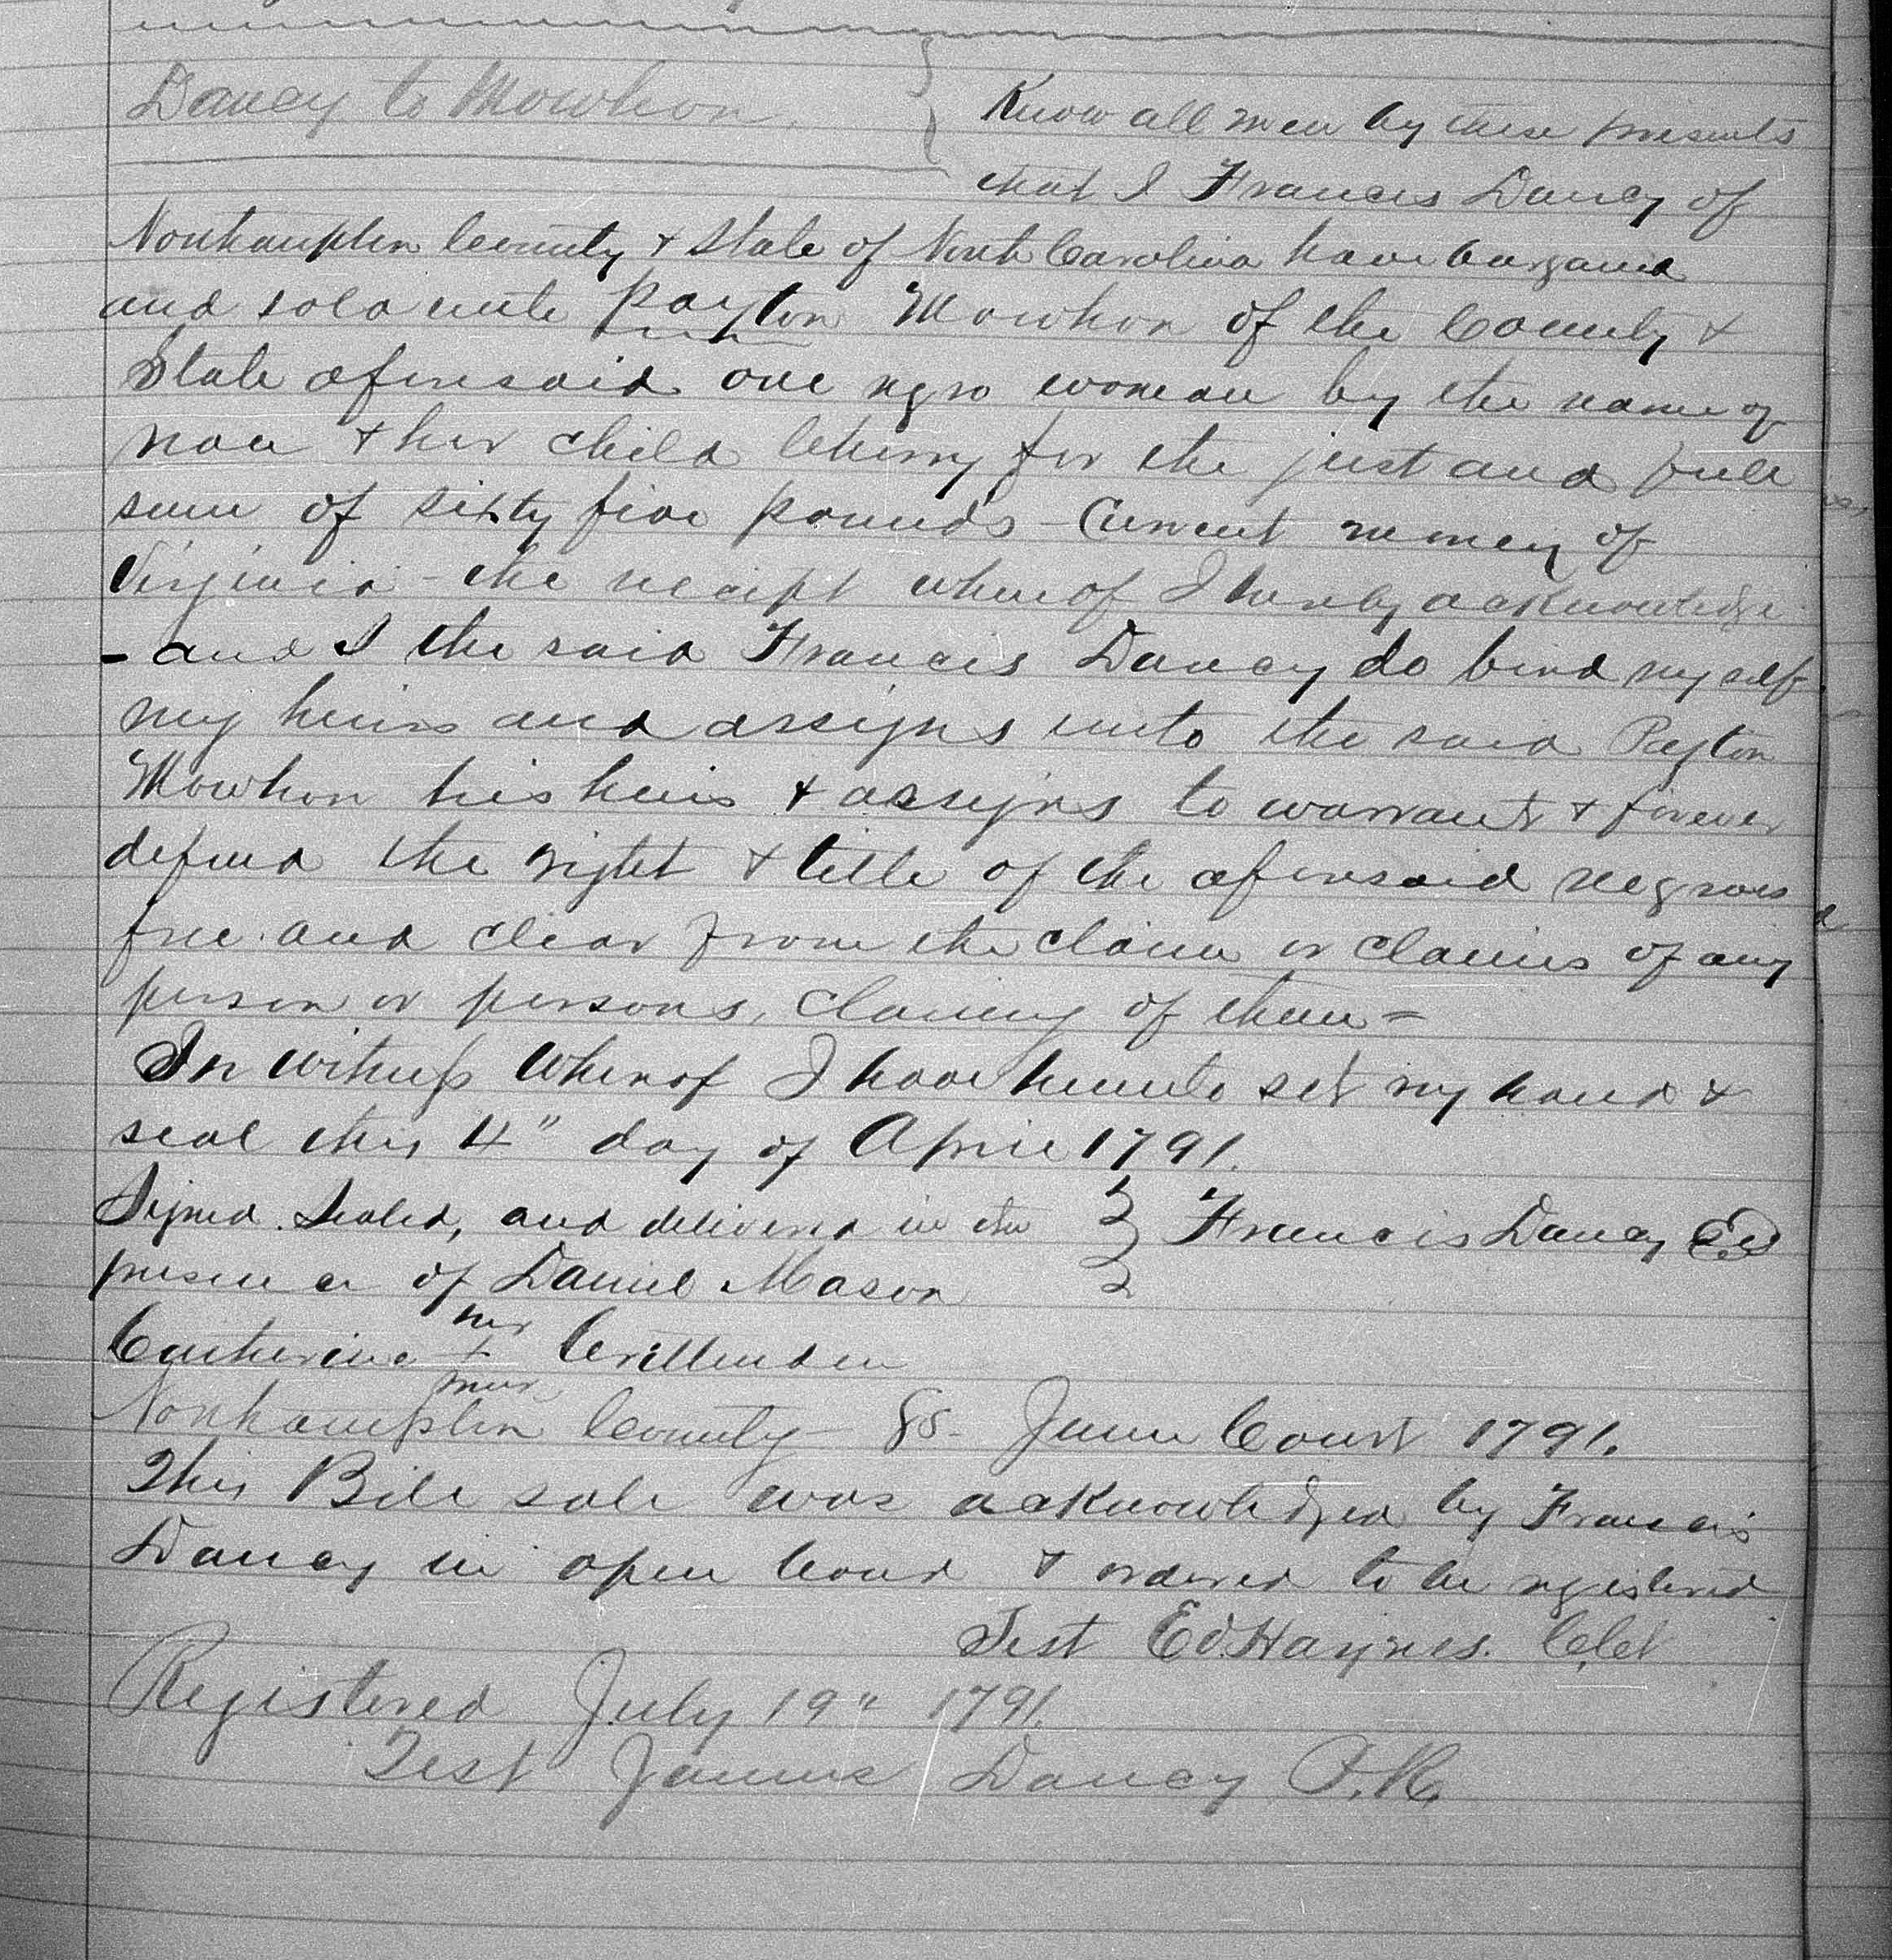 Dancy to Mowhon.
Know all men by these presents
that I Francis Dancy of
Northampton County & State of North Carolina have bargaind
and sold unto Payton Mowhon of the County &
State aforesaid one negro woman by the name of
& her child Cherry for the just and full
sum of sixty five pounds - Current money of
Virginia - the receipt whereof I hereby acknowledge
- and I the said Francis Dancy do bind myself
my heirs and assigns unto the said Peyton
Mowhon his heirs & assigns to warrant & forever
defend the right & title of the aforesaid negroes
free and clear from the claim or claims of any
person or persons, claming of them =
In witness whereof I have hereunto set my hand &
seal this 4" day of April 1791.
Signed Sealed, and deliverd in the } Francis Dancy
presence of Daniel Mason
her
Catherine + Crittenden
mark
Northampton County SS - June Court 1791.
This Bill sale was acknowledged by Francis
Dancy in open Court & ordered to be registered
Test Ed. Haynes. C, Ct
Registered July 19" 1791.
Test James Dancy P.R.